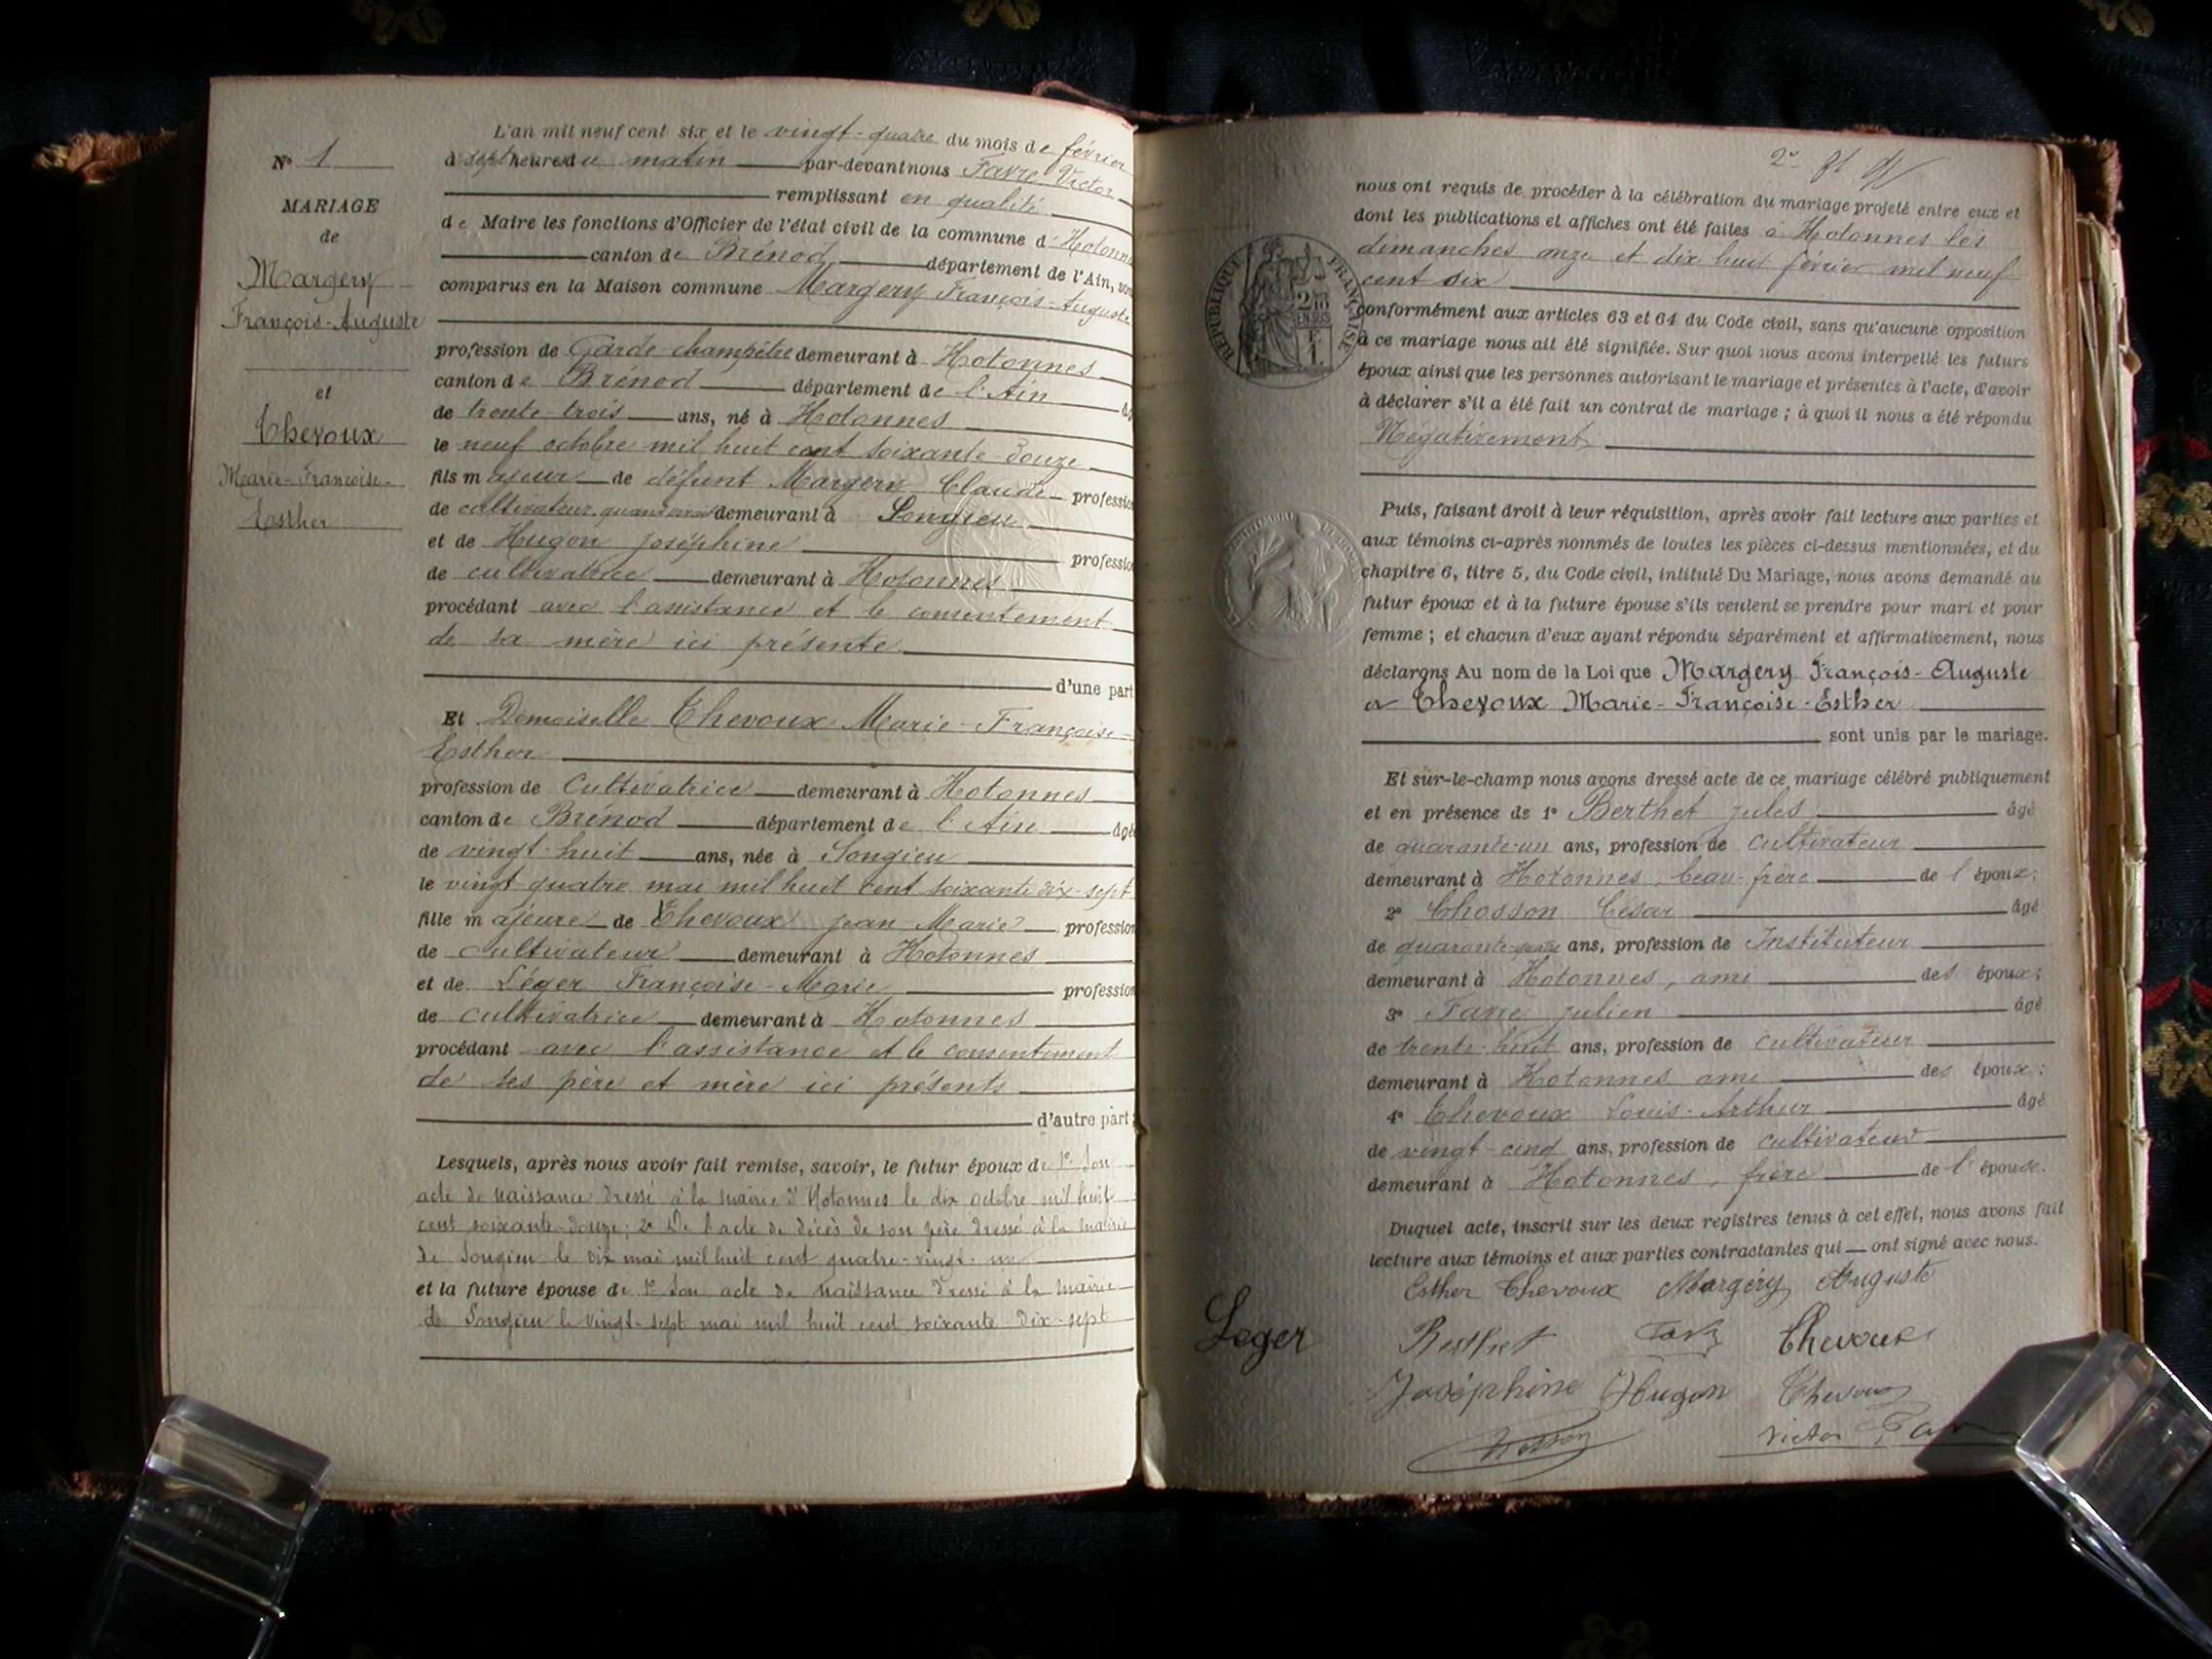 L'an mil neuf cent six et le vingt-quatre du mois de février
à sept heures du matin par-devant nous Favre Victor
remplissant en qualité
de Maire les fonctions d'Officier de l'état civil de la commune d'Hotonnes
canton de Brénod département de l'Ain, sont
comparus en la Maison commune Margery François-Auguste
profession de Garde champêtre demeurant à Hotonnes
canton de Brénod département de l'Ain âgé
de trente trois ans, né à Hotonnes
le neuf octobre mil huit cent soixante-douze
fils majeur de défunt Margery Claude profession
de cultivateur quand vivait demeurant à Songieu
et de Hugon joséphine profession
de cultivatrice demeurant à Hotonnes
procédant avec l'assistance et le consentement
de sa mère ici présente
d'une part
Et Demoiselle Chevoux Marie-Françoise-
Esther
profession de Cultivatrice demeurant à Hotonnes
canton de Brénod département de l'Ain âgé
de vingt-huit ans, née à Songieu
le vingt quatre mai mil huit cent soixante dix-sept
fille majeure de Chevoux jean Marie profession
de cultivateur demeurant à Hotonnes
et de Léger Françoise-Marie profession
de cultivatrice demeurant à Hotonnes
procédant avec l'assistance et le consentement
de ses père et mère ici présents
d'autre part;
Lesquels, après nous avoir fait remise, savoir, le futur époux de 1° Son
acte de naissance dressé à la mairie d'Hotonnes le dix octobre mil huit
cent soixante-douze; 2° De l'acte de décès de son père dressé à la mairie
de Songieu le dix mai mil huit cent quatre-vingt-un
et la future épouse de 1° Son acte de naissance dressé à la mairie
de Songieu le vingt-sept mai mil huit cent soixante dix-sept
N° 1
MARIAGE
de
Margery
François-Auguste
et
Chevoux
Marie-Françoise-
Esther
2°
nous ont requis de procéder à la célébration du mariage projeté entre eux et
dont les publications et affiches ont été faites à Hotonnes les
dimanches onze et dix huit février mil neuf
cent six
conformément aux articles 63 et 64 du Code civil, sans qu'aucune opposition
à ce mariage nous ait été signifiée. Sur quoi nous avons interpellé les futurs
époux ainsi que les personnes autorisant le mariage et présentes à l'acte, d'avoir
à déclarer s'il a été fait un contrat de mariage; à quoi il nous a été répondu
Négativement
Puis, faisant droit à leur réquisition, après avoir fait lecture aux parties et
aux témoins ci-après nommés de toutes les pièces ci-dessus mentionnées, et du
chapitre 6, titre 5, du Code civil, intitulé Du Mariage, nous avons demandé au
futur époux et à la future épouse s'ils veulent se prendre pour mari et pour
femme; et chacun d'eux ayant répondu séparément et affirmativement, nous
déclarons Au nom de la Loi que Margery François-Auguste
et Chevoux Marie-Françoise-Esther
sont unis par le mariage.
Et sur-le-champ nous avons dressé acte de ce mariage célébré publiquement
et en présence de 1° Berthet jules âgé
de quarante-un ans, profession de cultivateur
demeurant à Hotonnes, beau-frère de l'époux;
2° Chosson César âgé
de quarante-quatre ans, profession de Instituteur
demeurant à Hotonnes, ami des époux;
3° Favre julien âgé
de trente-huit ans, profession de cultivateur
demeurant à Hotonnes ami des époux;
4° Chevoux Louis-Arthur âgé
de vingt-cinq ans, profession de cultivateur
demeurant à Hotonnes, frère de l'épouse.
Duquel acte, inscrit sur les deux registres tenus à cet effet, nous avons fait
lecture aux témoins et aux parties contractantes qui ont signé avec nous.
Esther Chevoux Margéry Auguste
Leger Berthet Chevoux
Joséphine Hugon Chevoux
Victor
RÉPUBLIQUE FRANÇAISE